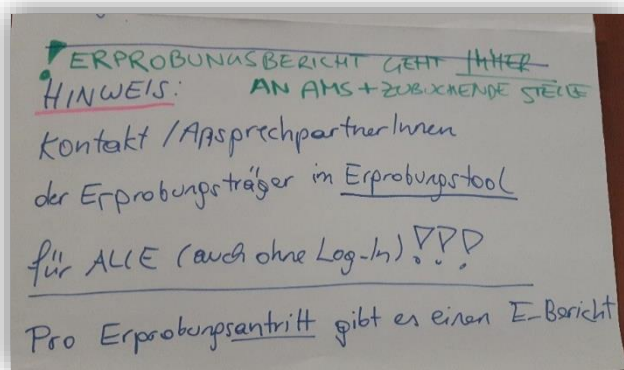 ! ERPROBUNGSBERICHT GEHT IMMER
HINWEIS: AN AMS + ZUBUCHENDE STELLE
Kontakt / AnsprechpartnerInnen
der Erprobungsträger im Erprobungstool
für ALLE (auch ohne Log-In) ???
Pro Erprobungsantritt gibt es einen E-Bericht